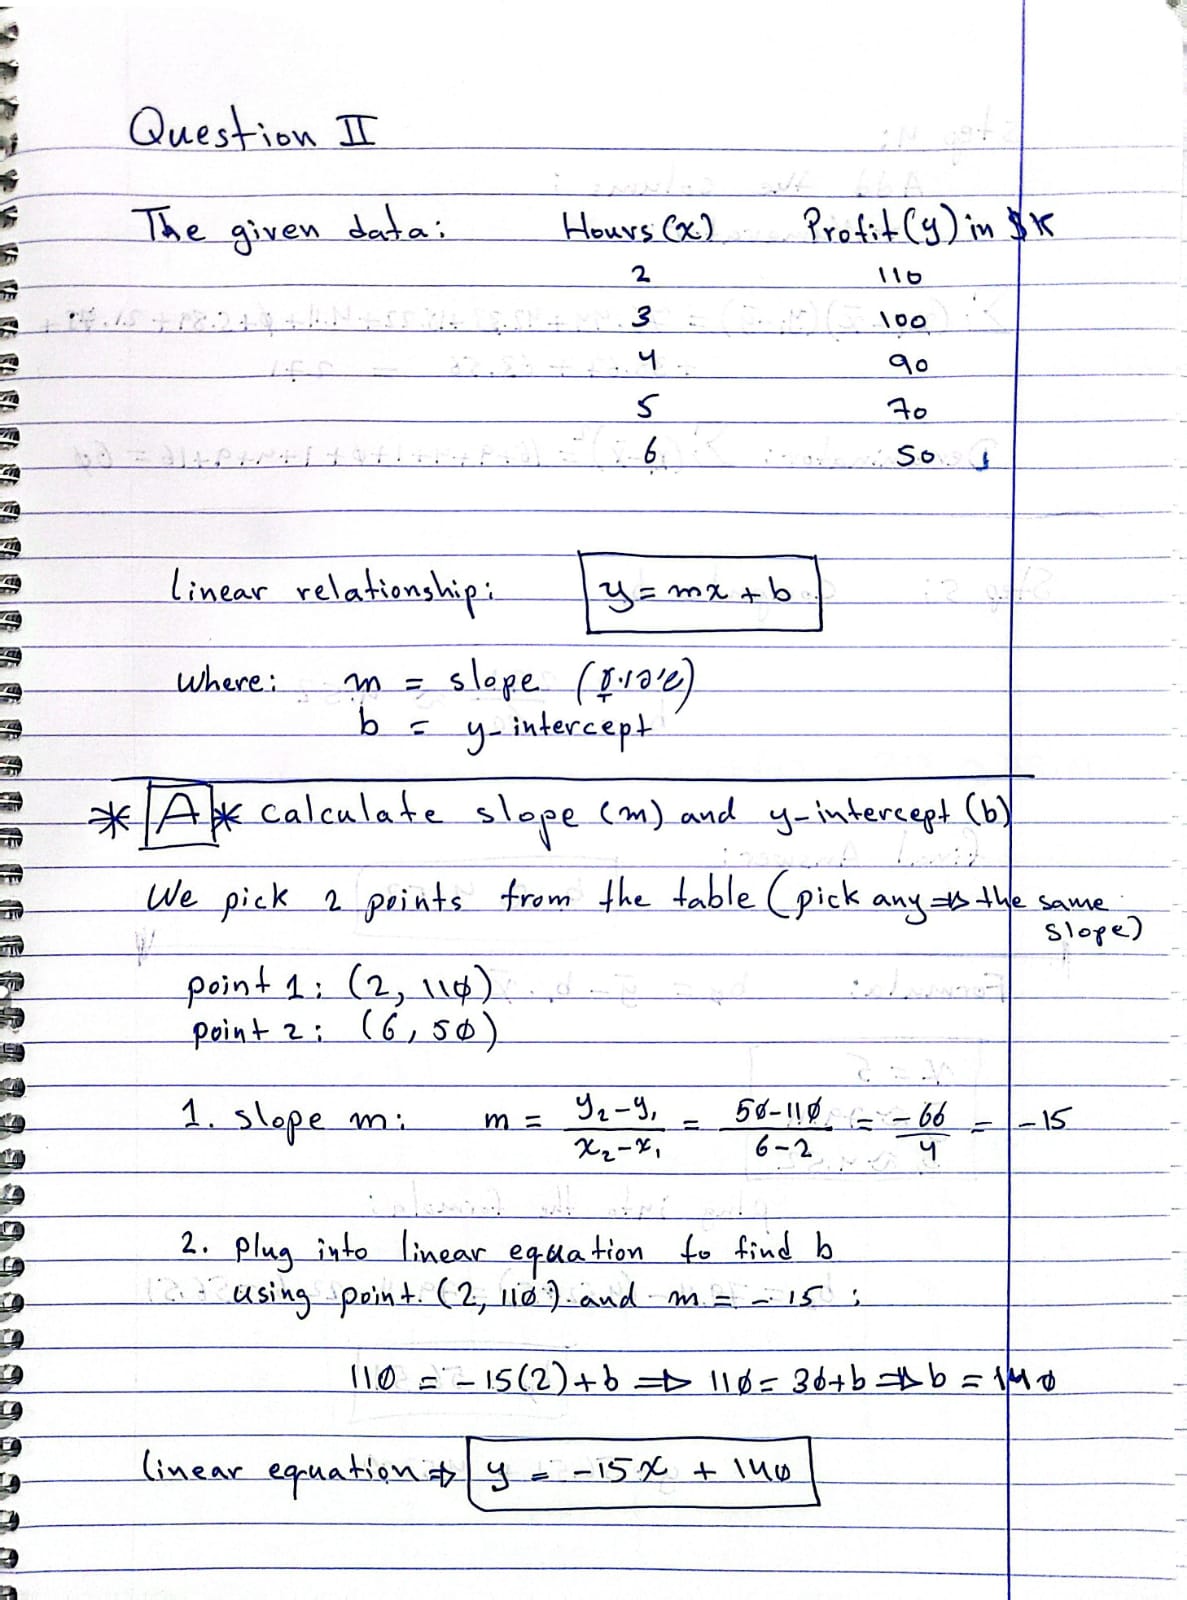 Question II
The given data: Hours (x) Profit (y) in $K
2 110
3 100
4 90
5 70
6 50
linear relationship: y = mx + b
where: m = slope
b = y-intercept
* A * calculate slope (m) and y-intercept (b)
We pick 2 points from the table (pick any => the same
slope)
point 1: (2, 110)
point 2: (6, 50)
1. slope m: m = y₂-y₁/x₂-x₁ = 50-110/6-2 = -60/4 = -15
2. plug into linear equation to find b
using point (2, 110) and m = -15 :
110 = -15(2)+b => 110 = 30+b => b = 140
linear equation => y = -15x + 140